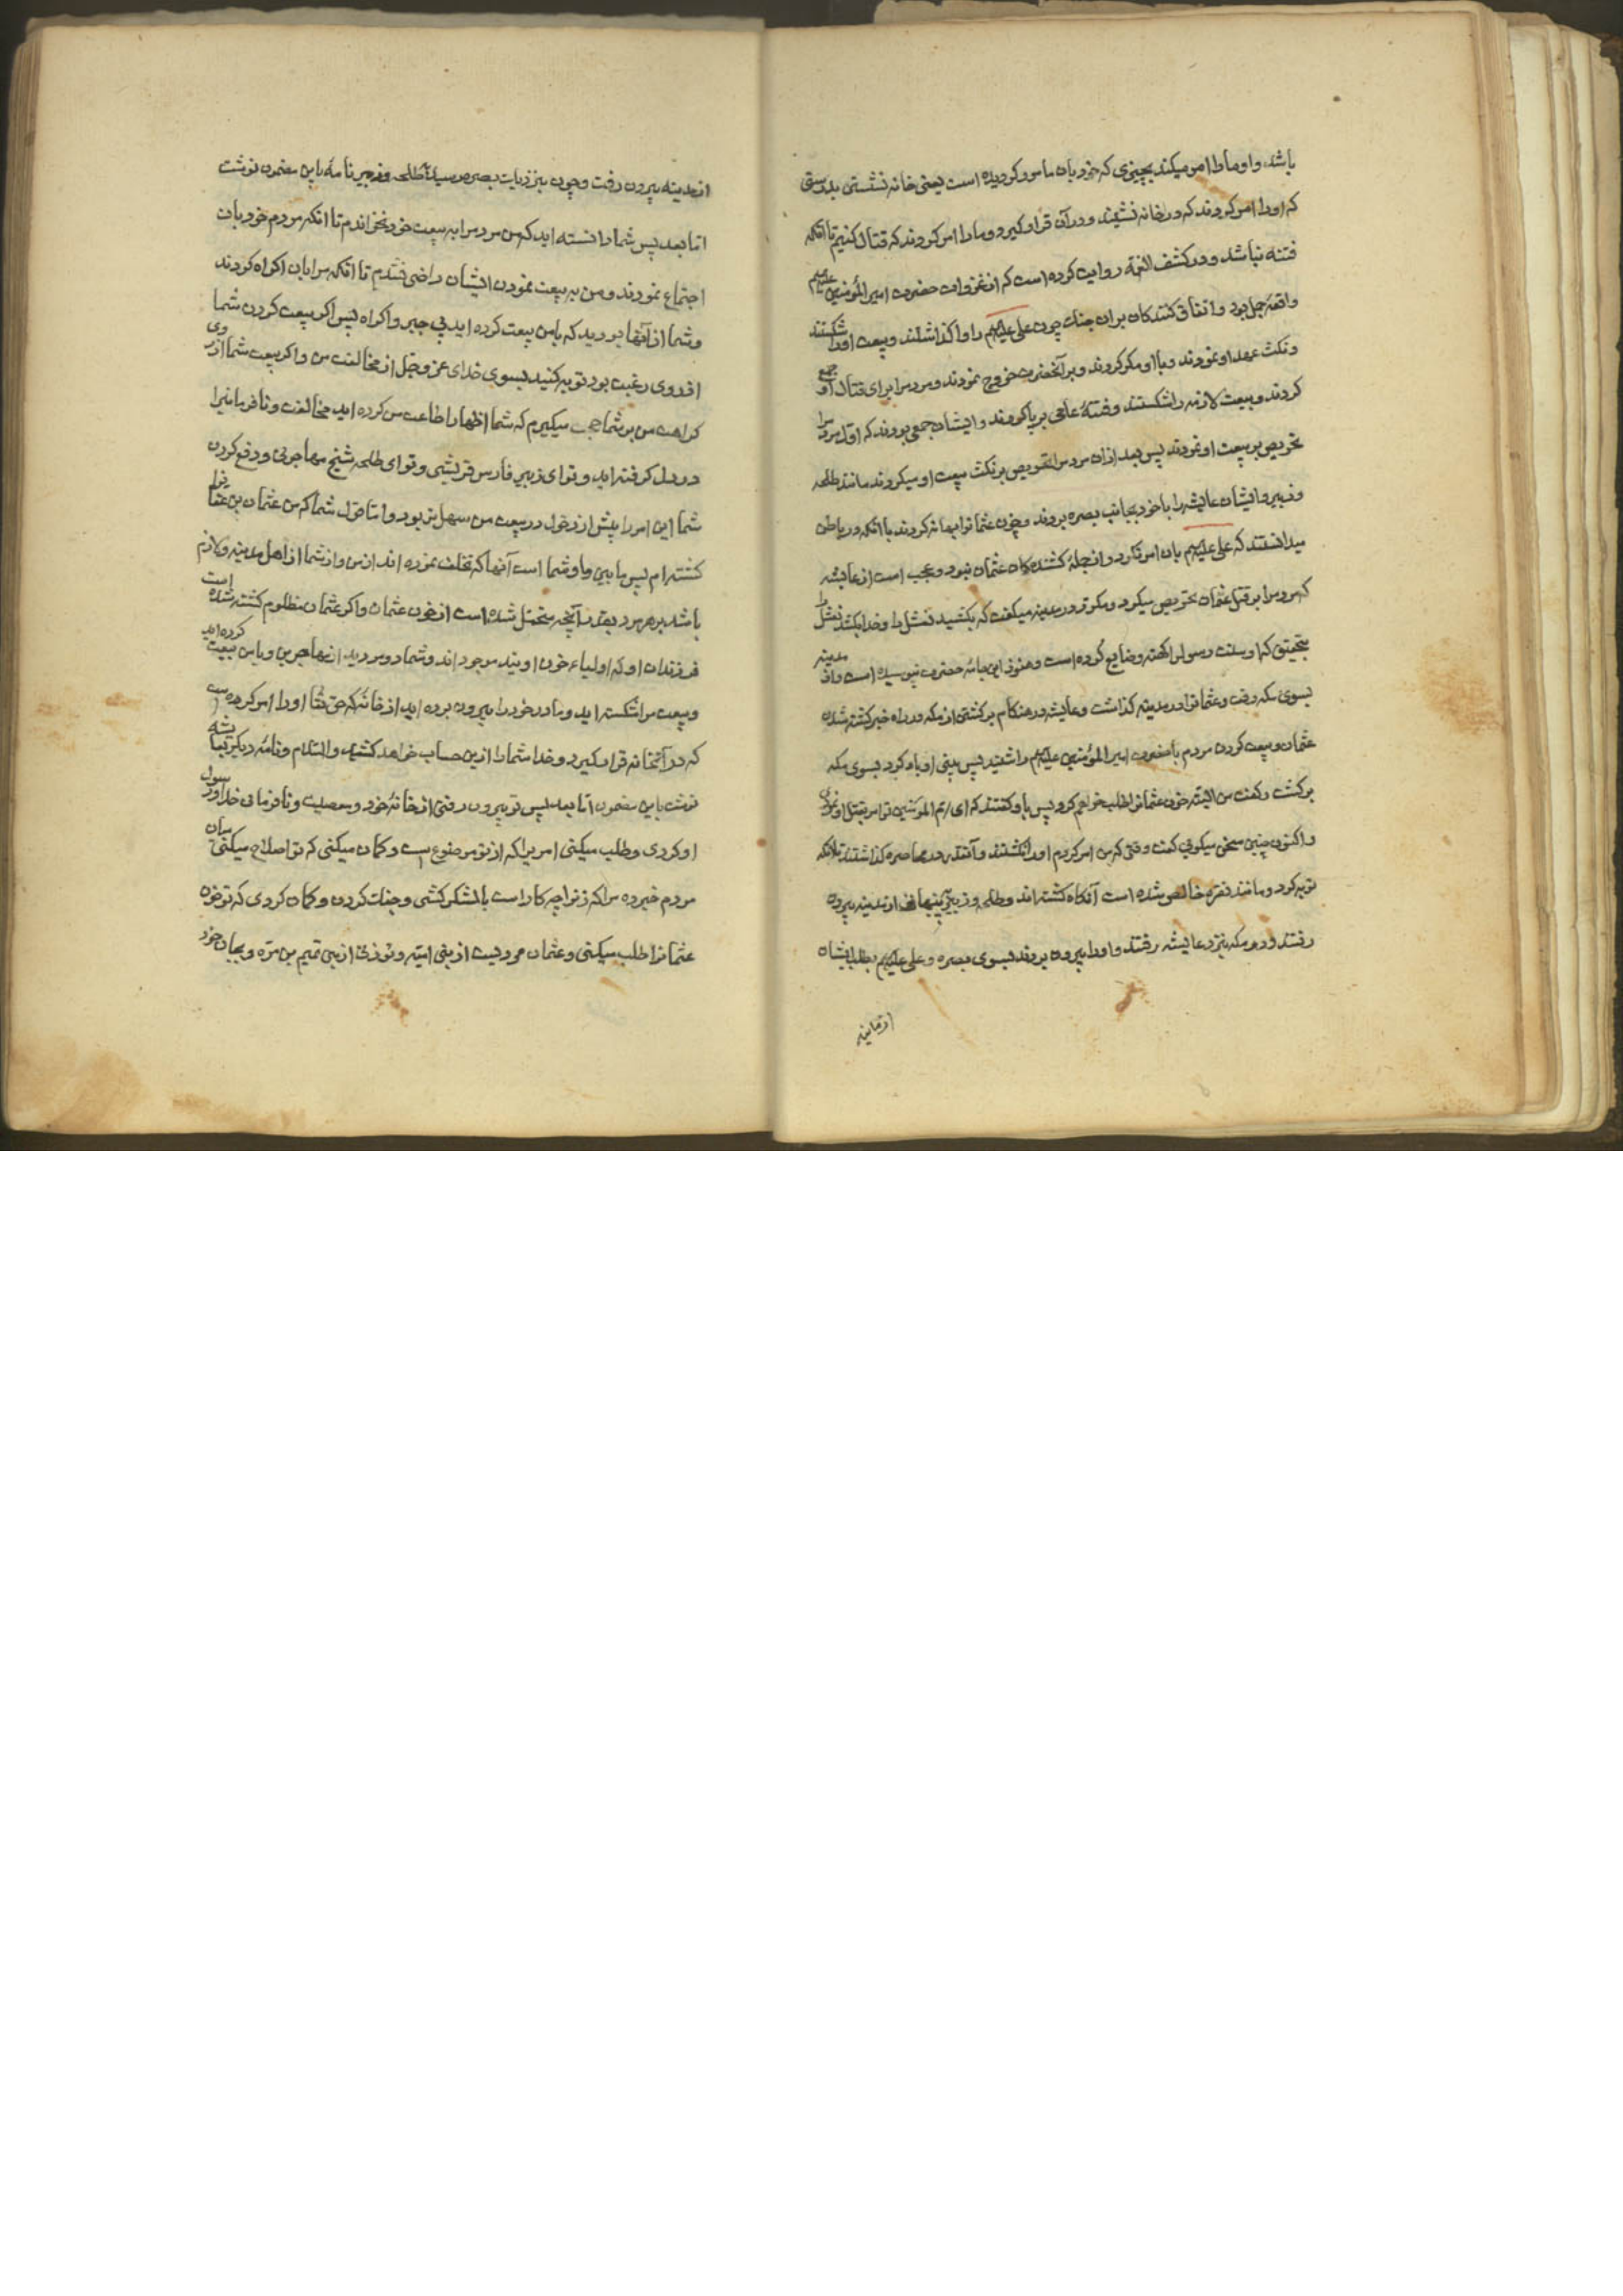 باشد و او ما را امر میکند بچیزی که خود بان مامور کردیده است یعنی خانه نشستن بدرستی
که او را امر کردند که در خانه نشیند و در آن قرار کیرد و ما را امر کردند که قتال کنیم تا آنکه
فتنه نباشد و در کشف الغمة روایت کرده است که از غزوات حضرت امیر المؤمنین علیه السلم
واقعۀ جمل بود و اتفاق کنندکان بران جنك چون علی علیه السلم را واکذاشتند و بیعت او را شکستند
و نکث عهد او نمودند و با او مکر کردند و بر آنحضرت خروج نمودند و مردم را برای قتال او جمع
کردند و بیعت لازمه را شکستند و فتنۀ عامی برپا کردند و ایشان جمعی بودند که اول مردم را
تحریص بر بیعت او نمودند پس بعد از ان مردم را تحریص بر نکث بیعت او میکردند مانند طلحه
و زبیر و ایشان عایشه را با خود بجانب بصره بردند و خون عثمانرا بهانه کردند با آنکه در باطن
میدانستند که علی علیه السلم بان امر نکرد و از جملۀ کشندکان عثمان نبود و عجب است از عایشه
که مردم را بر قتل عثمان تحریص میکرد و مکرر در مدینه میکفت که بکشید نعثل را و خدا بکشد نعثل را
بتحقیق که او سنت رسولرا کهنه و ضایع کرده است و هنوز این جامۀ حضرت نپوسیده است و از مدینه
بسوی مکه رفت و عثمانرا در مدینه کذاشت و عایشه در هنکام برکشتن از مکه در راه خبر کشته شدن
عثمان و بیعت کردن مردم با حضرت امیر المؤمنین علیه السلم را شنید پس پنی اوباه کرد بسوی مکه
برکشت و کفت من البته خون عثمانرا طلب خواهم کرد پس باو کفتند که ای ام المؤمنین تو امر بقتل او نمودی
و اکنون چنین سخن میکویی کفت وقتی که من امر کردم او را نکشتند و آنقدر در محاصره کذاشتند تا آنکه
توبه کرد و مانند نقره خالص شده است آنکاه کشته اند و طلحه و زبیر پنهانی از مدینه بیرون
رفتند و در مکه بنزد عایشه رفتند و او را بیرون بردند بسوی بصره و علی علیه السلم بطلب ایشان
از مدینه
از مدینه بیرون رفت و چون بنزدیك بصره رسید طلحه و زبیر نامۀ باین مضمون نوشت
اما بعد پس شما دانسته اید که من مردم را به بیعت خود نخواندم تا آنکه مردم خود بان
اجتماع نمودند و من به بیعت نمودن ایشان راضی نشدم تا آنکه مرا بان اکراه کردند
و شما از آنها بودید که با من بیعت کرده اید بی جبر و اکراه پس اکر بیعت کردن شما
از روی رغبت بود توبه کنید بسوی خدای عز و جل از مخالفت من و اکر بیعت شما از روی
کراهت من بر شما حجت میکیرم که شما اظهار اطاعت من کرده اید و مخالفت و نافرمانیرا
در دل کرفته اید و تو ای زبیر فارس قریشی و تو ای طلحه شیخ مهاجرینی و دفع کردن
شما این امر را پیش از دخول در بیعت من سهل تر بود و اما قول شما که من عثمان بن عفانرا
کشته ام پس ما بین ما و شما است آنها که تخلف نموده اند از من و از شما از اهل مدینه و لازم
باشد بر هر مرد بقدر آنچه متحمل شده است از خون عثمان و اکر عثمان مظلوم کشته شده است
فرزندان او که اولیاء خون اویند موجود اند و شما دو مردید از مهاجرین و با من بیعت کرده اید
و بیعت مرا شکسته اید و مادر خود را بیرون برده اید از خانۀ که حق تعالی او را امر کرده است
که در آنخانه قرار کیرد و خدا شما را ازین حساب خواهد کشید والسلام و نامۀ دیکر بعایشه
نوشت باین مضمون اما بعد پس تو بیرون رفتی از خانۀ خود و معصیت و نافرمانی خدا و رسول
او کردی و طلب میکنی امریرا که از تو موضوع است و کمان میکنی که تو اصلاح میکنی میان
مردم خبر ده مرا که زنرا چه کار است با لشکر کشی و جنك کردن و کمان کردی که تو خون
عثمانرا طلب میکنی و عثمان مردیست از بنی امیه و تو زنی از بنی تمیم بن مره و بجان خود